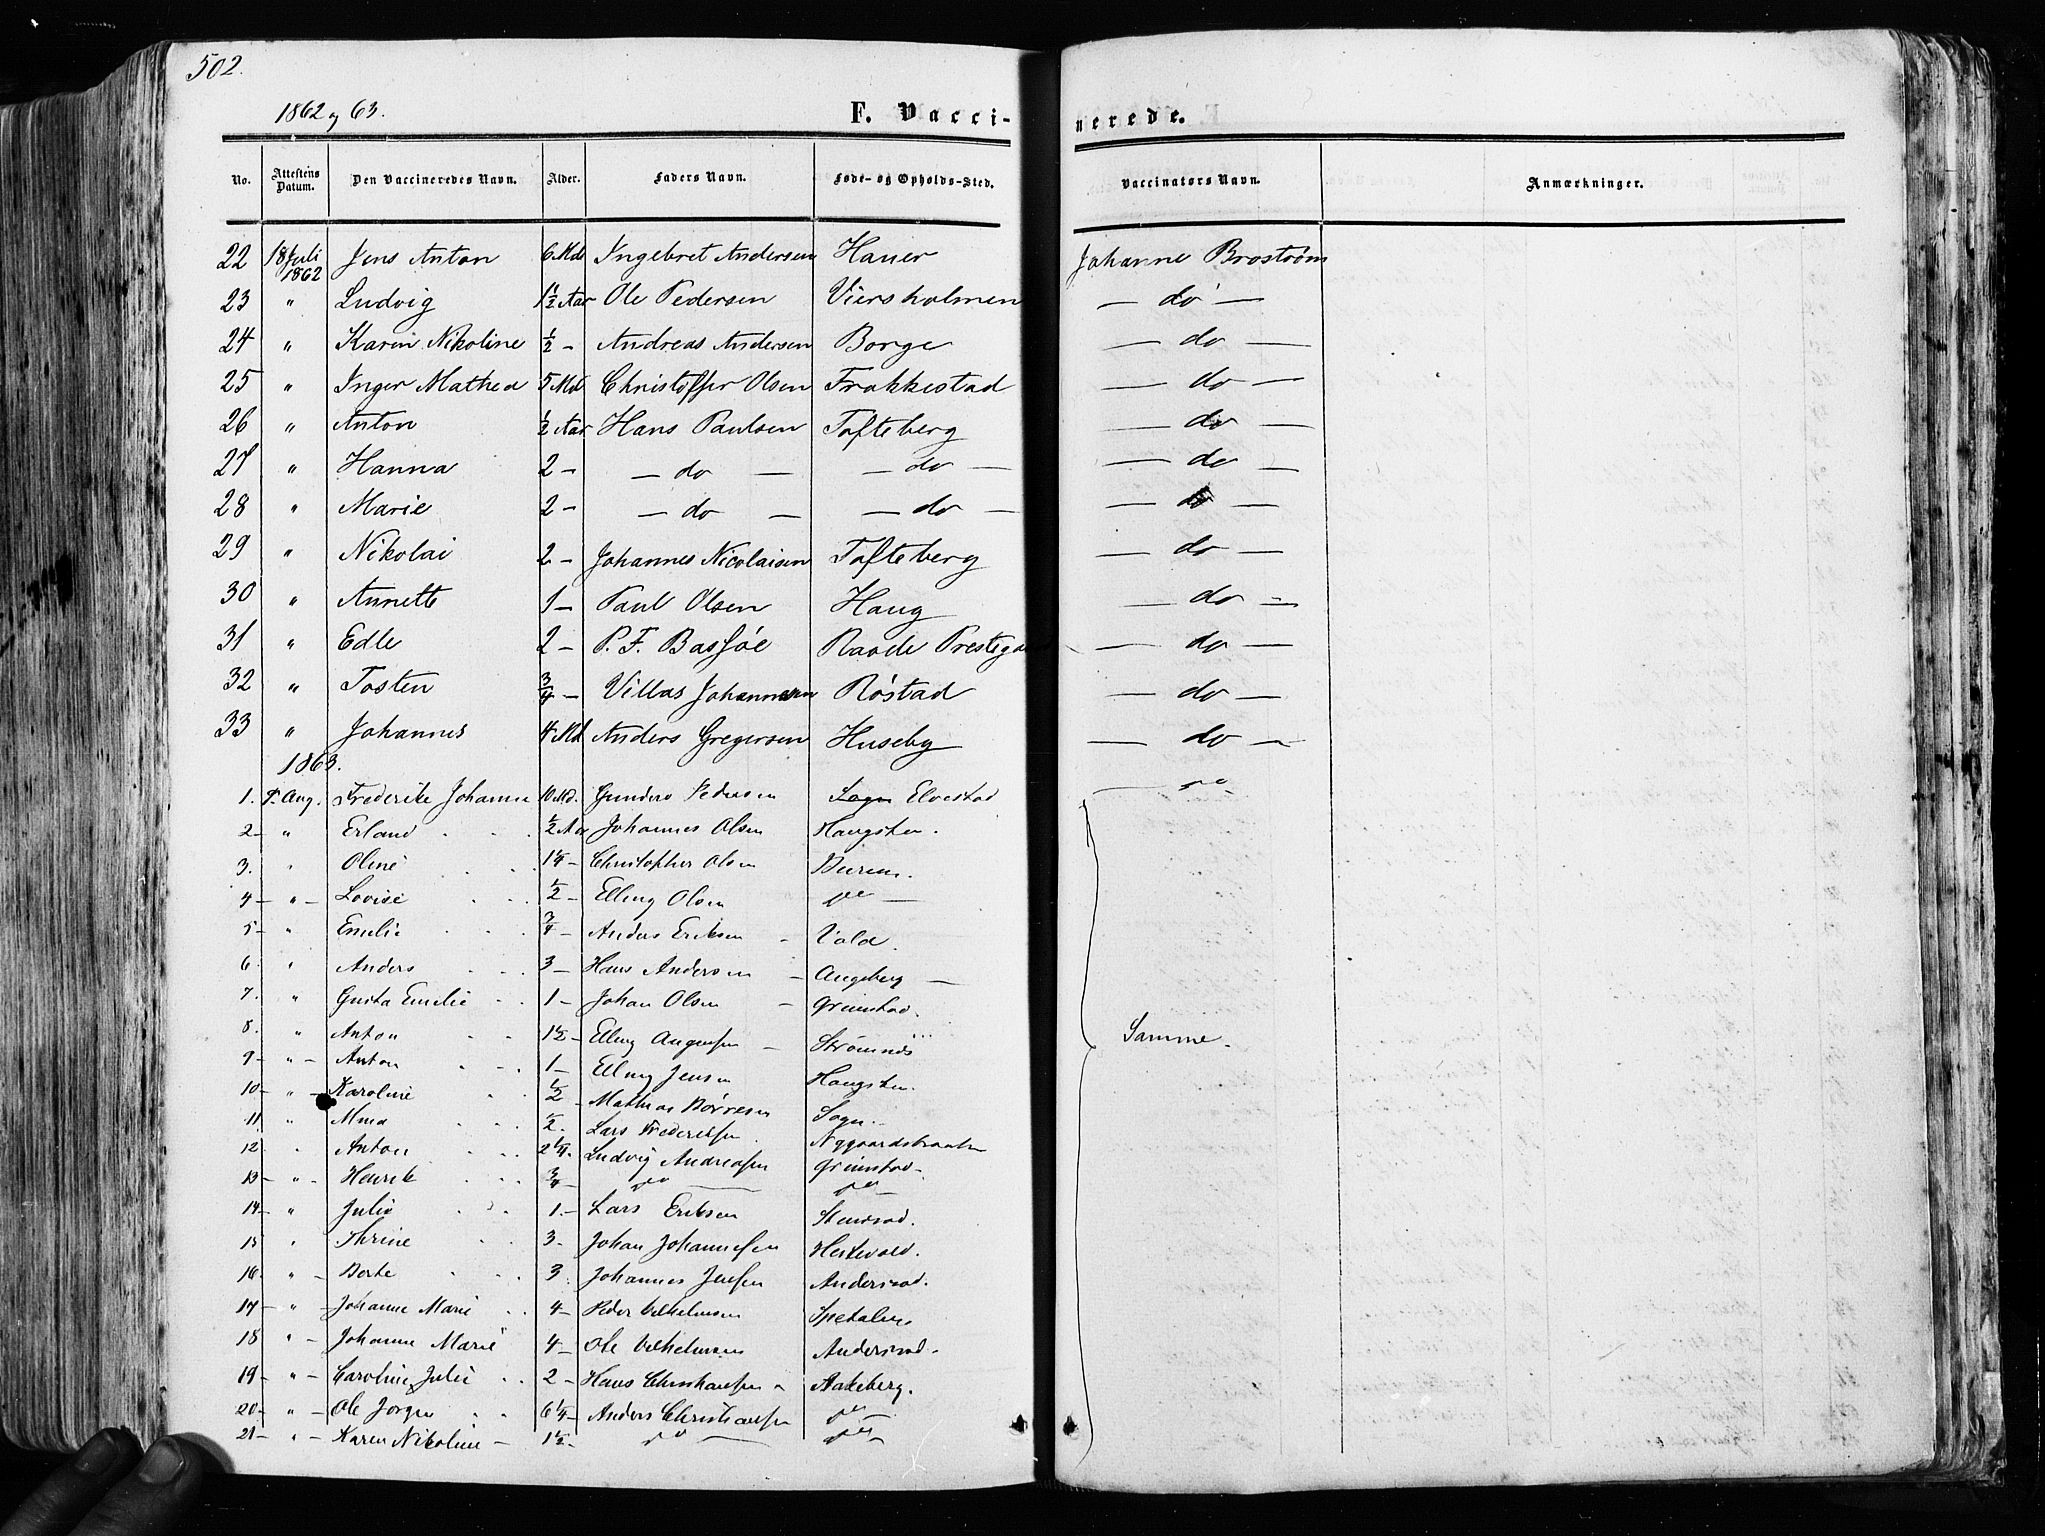 502.
1862 og 63.
F. Vacci- nerede.
No. Attestens Datum. Den Vaccineredes Navn. Alder. Faders Navn. Føde- og Opholds-Sted. Vaccinatørs Navn. Anmærkninger.
22 18 Juli 1862 Jens Anton 6 Md Ingebret Andersen Haner Johanne Brostrøm
23 " Ludvig 1½ Aar Ole Pedersen Viersholmen — do —
24 " Karin Nikoline ½ - Andreas Andersen Borge — do —
25 " Inger Mathea 5 Md Christoffer Olsen Frakkestad — do —
26 " Anton ½ Aar Hans Paulsen Tofteberg — do —
27 " Hanna 2 - — do — — do — — do —
28 " Marie 2 - — do — — do — — do —
29 " Nikolai 2 - Johannes Nicolaisen Tofteberg — do —
30 " Annette 1 - Paul Olsen Haug — do —
31 " Edle 2 - P. F. Bassøe Raade Prestega — do —
32 " Tosten ¾ - Villas Johannesen Röstad — do —
33 " Johannes 4 Md Anders Gregersen Huseby — do —
1863.
1. Aug. Frederike Johanne 10 Md. Gunders Pedersen Elvestad — do
2 - " Erland ½ Aar Johannes Olsen Haugsten.
3. " Oline 1¼ - Christopher Olsen
4 - " - Lovise ½ - Elling Olsen do —
5 - " Emilie ¾ - Anders Eriksen - Vold.
6. " Anders 3 - Hans Andersen - Augeberg —
7. " Gusta Emilie 1 - Johan Olsen - Grimstad.
8. " Anton 1½ - Elling Augensen - Strömnäs
9 - " - Anton 1 - Elling Jensen Haugsten.
10 - " - Karoline ½ - Mathias Börresen Sogn.
11. " Mina ½. Lars Frederiksen Nygaardsbraaten
12. " Anton 2¼. Ludvig Andreasen Grimstad -
13 - " - Henrik ¾ - do — do -
14 - " Julie 1. - Lars Eriksen
15 " Thrine 3 - Johan Johannesen Hestevold.
16. " - Berte 3. Johannes Jensen Andersrod.
17 - " - Johanne Marie 4 - Peder Vilhelmsen Spetalen
18 " - Johanne Marie 4 - Ole Vilhelmsen Andersrod.
19 - " - Caroline Julie 2 - Hans Christiansen - Aakeberg.
20 - " - Ole Jørgen 6¼ - Anders Christiansen do —
21 - " - Karen Nikoline - 1½ - do — do -
Samme.